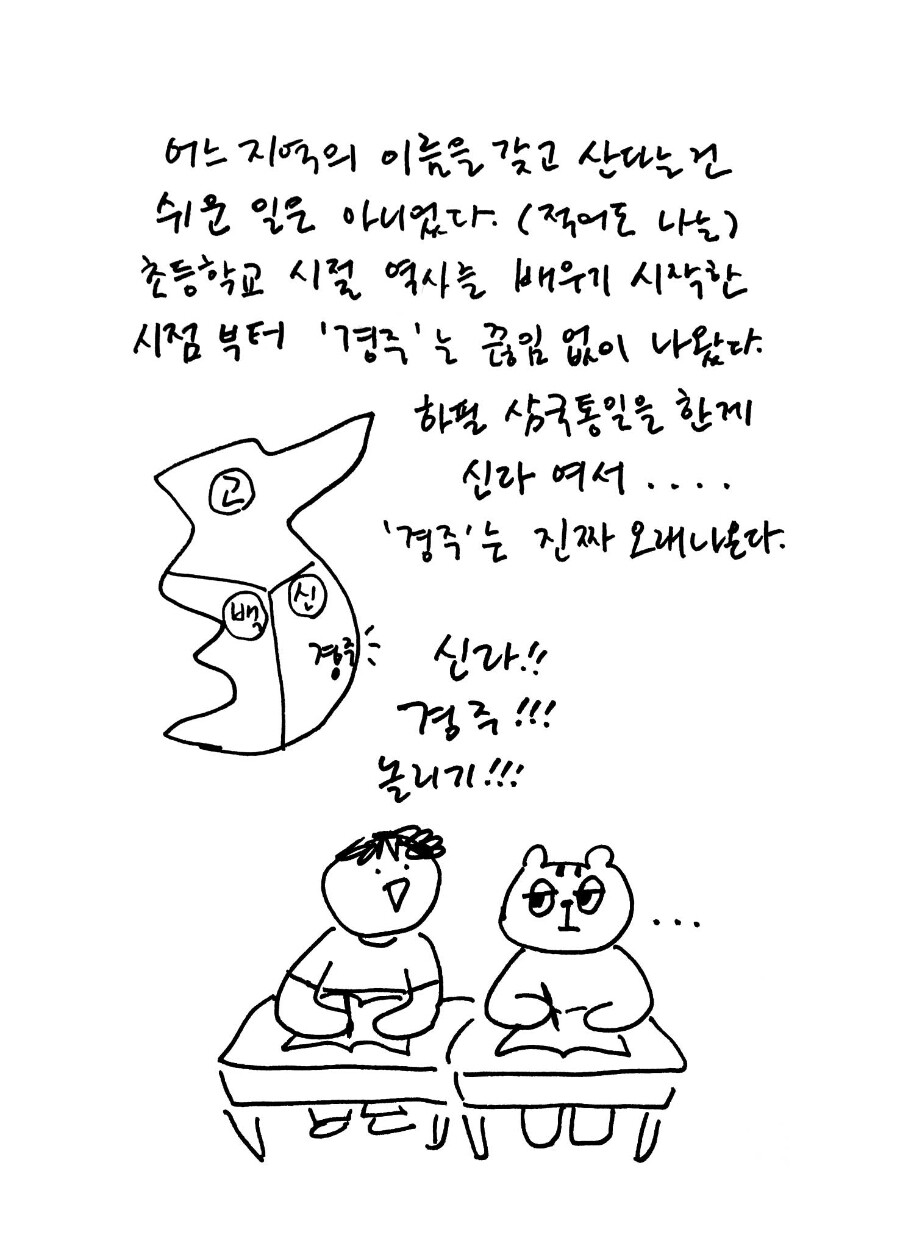 어느 지역의 이름을 갖고 산다는건
쉬운 일은 아니었다. (적어도 나는)
초등학교 시절 역사를 배우기 시작한
시점 부터 '경주'는 끊임 없이 나왔다.
하필 삼국통일을 한게
신라 여서 ....
'경주'는 진짜 오래나온다.
고
백
신
경주
신라!!
경주!!!
놀리기!!!
...